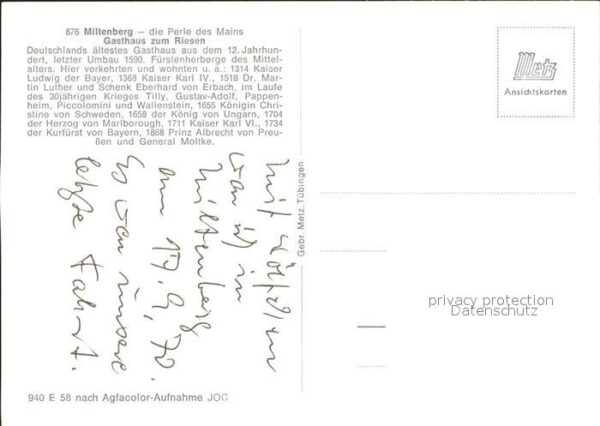 876 Miltenberg — die Perle des Mains
Gasthaus zum Riesen
Deutschlands ältestes Gasthaus aus dem 12. Jahrhun-
dert, letzter Umbau 1590. Fürstenherberge des Mittel-
alters. Hier verkehrten und wohnten u. a.: 1314 Kaiser
Ludwig der Bayer, 1368 Kaiser Karl IV., 1518 Dr. Mar-
tin Luther und Schenk Eberhard von Erbach, im Laufe
des 30jährigen Krieges Tilly, Gustav-Adolf, Pappen-
heim, Piccolomini und Wallenstein, 1655 Königin Chri-
stine von Schweden, 1658 der König von Ungarn, 1704
der Herzog von Marlborough, 1711 Kaiser Karl VI., 1734
der Kurfürst von Bayern, 1868 Prinz Albrecht von Preu-
ßen und General Moltke.
mit
war ich in
Miltenberg
am 17.9.70.
Es war unsere
letzte Fahrt.
Gebr. Metz, Tübingen
Metz
Ansichtskarten
privacy protection
Datenschutz
940 E 58 nach Agfacolor-Aufnahme JOC